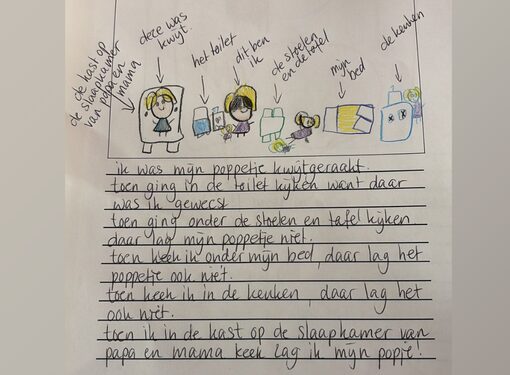 de kast op
de slaapkamer
van papa en
mama
deze was
kwijt.
het toilet
dit ben
ik
de stoelen
en de tafel
mijn
bed
de keuken
ik was mijn poppetje kwijtgeraakt.
toen ging in de toilet kijken want daar
was ik geweest
toen ging onder de stoelen en tafel kijken
daar lag mijn poppetje niet.
toen keek ik onder mijn bed, daar lag het
poppetje ook niet.
toen keek ik in de keuken, daar lag het
ook niet.
toen ik in de kast op de slaapkamer van
papa en mama keek lag ik mijn popje!